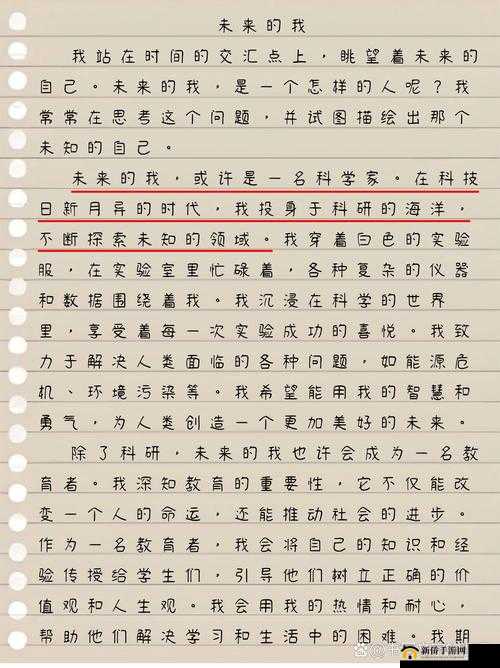 未来的我
我站在时间的交汇点上，眺望着未来的
自己。未来的我，是一个怎样的人呢？我
常常在思考这个问题，并试图描绘出那个
未知的自己。
未来的我，或许是一名科学家。在科技
日新月异的时代，我投身于科研的海洋，
不断探索未知的领域。我穿着白色的实验
服，在实验室里忙碌着，各种复杂的仪器
和数据围绕着我。我沉浸在科学的世界
里，享受着每一次实验成功的喜悦。我致
力于解决人类面临的各种问题，如能源危
机、环境污染等。我希望能用我的智慧和
勇气，为人类创造一个更加美好的未来。
除了科研，未来的我也许会成为一名教
育者。我深知教育的重要性，它不仅能改
变一个人的命运，还能推动社会的进步。
作为一名教育者，我会将自己的知识和经
验传授给学生们，引导他们树立正确的价
值观和人生观。我会用我的热情和耐心，
帮助他们解决学习和生活中的困难。我期
新侨手游网